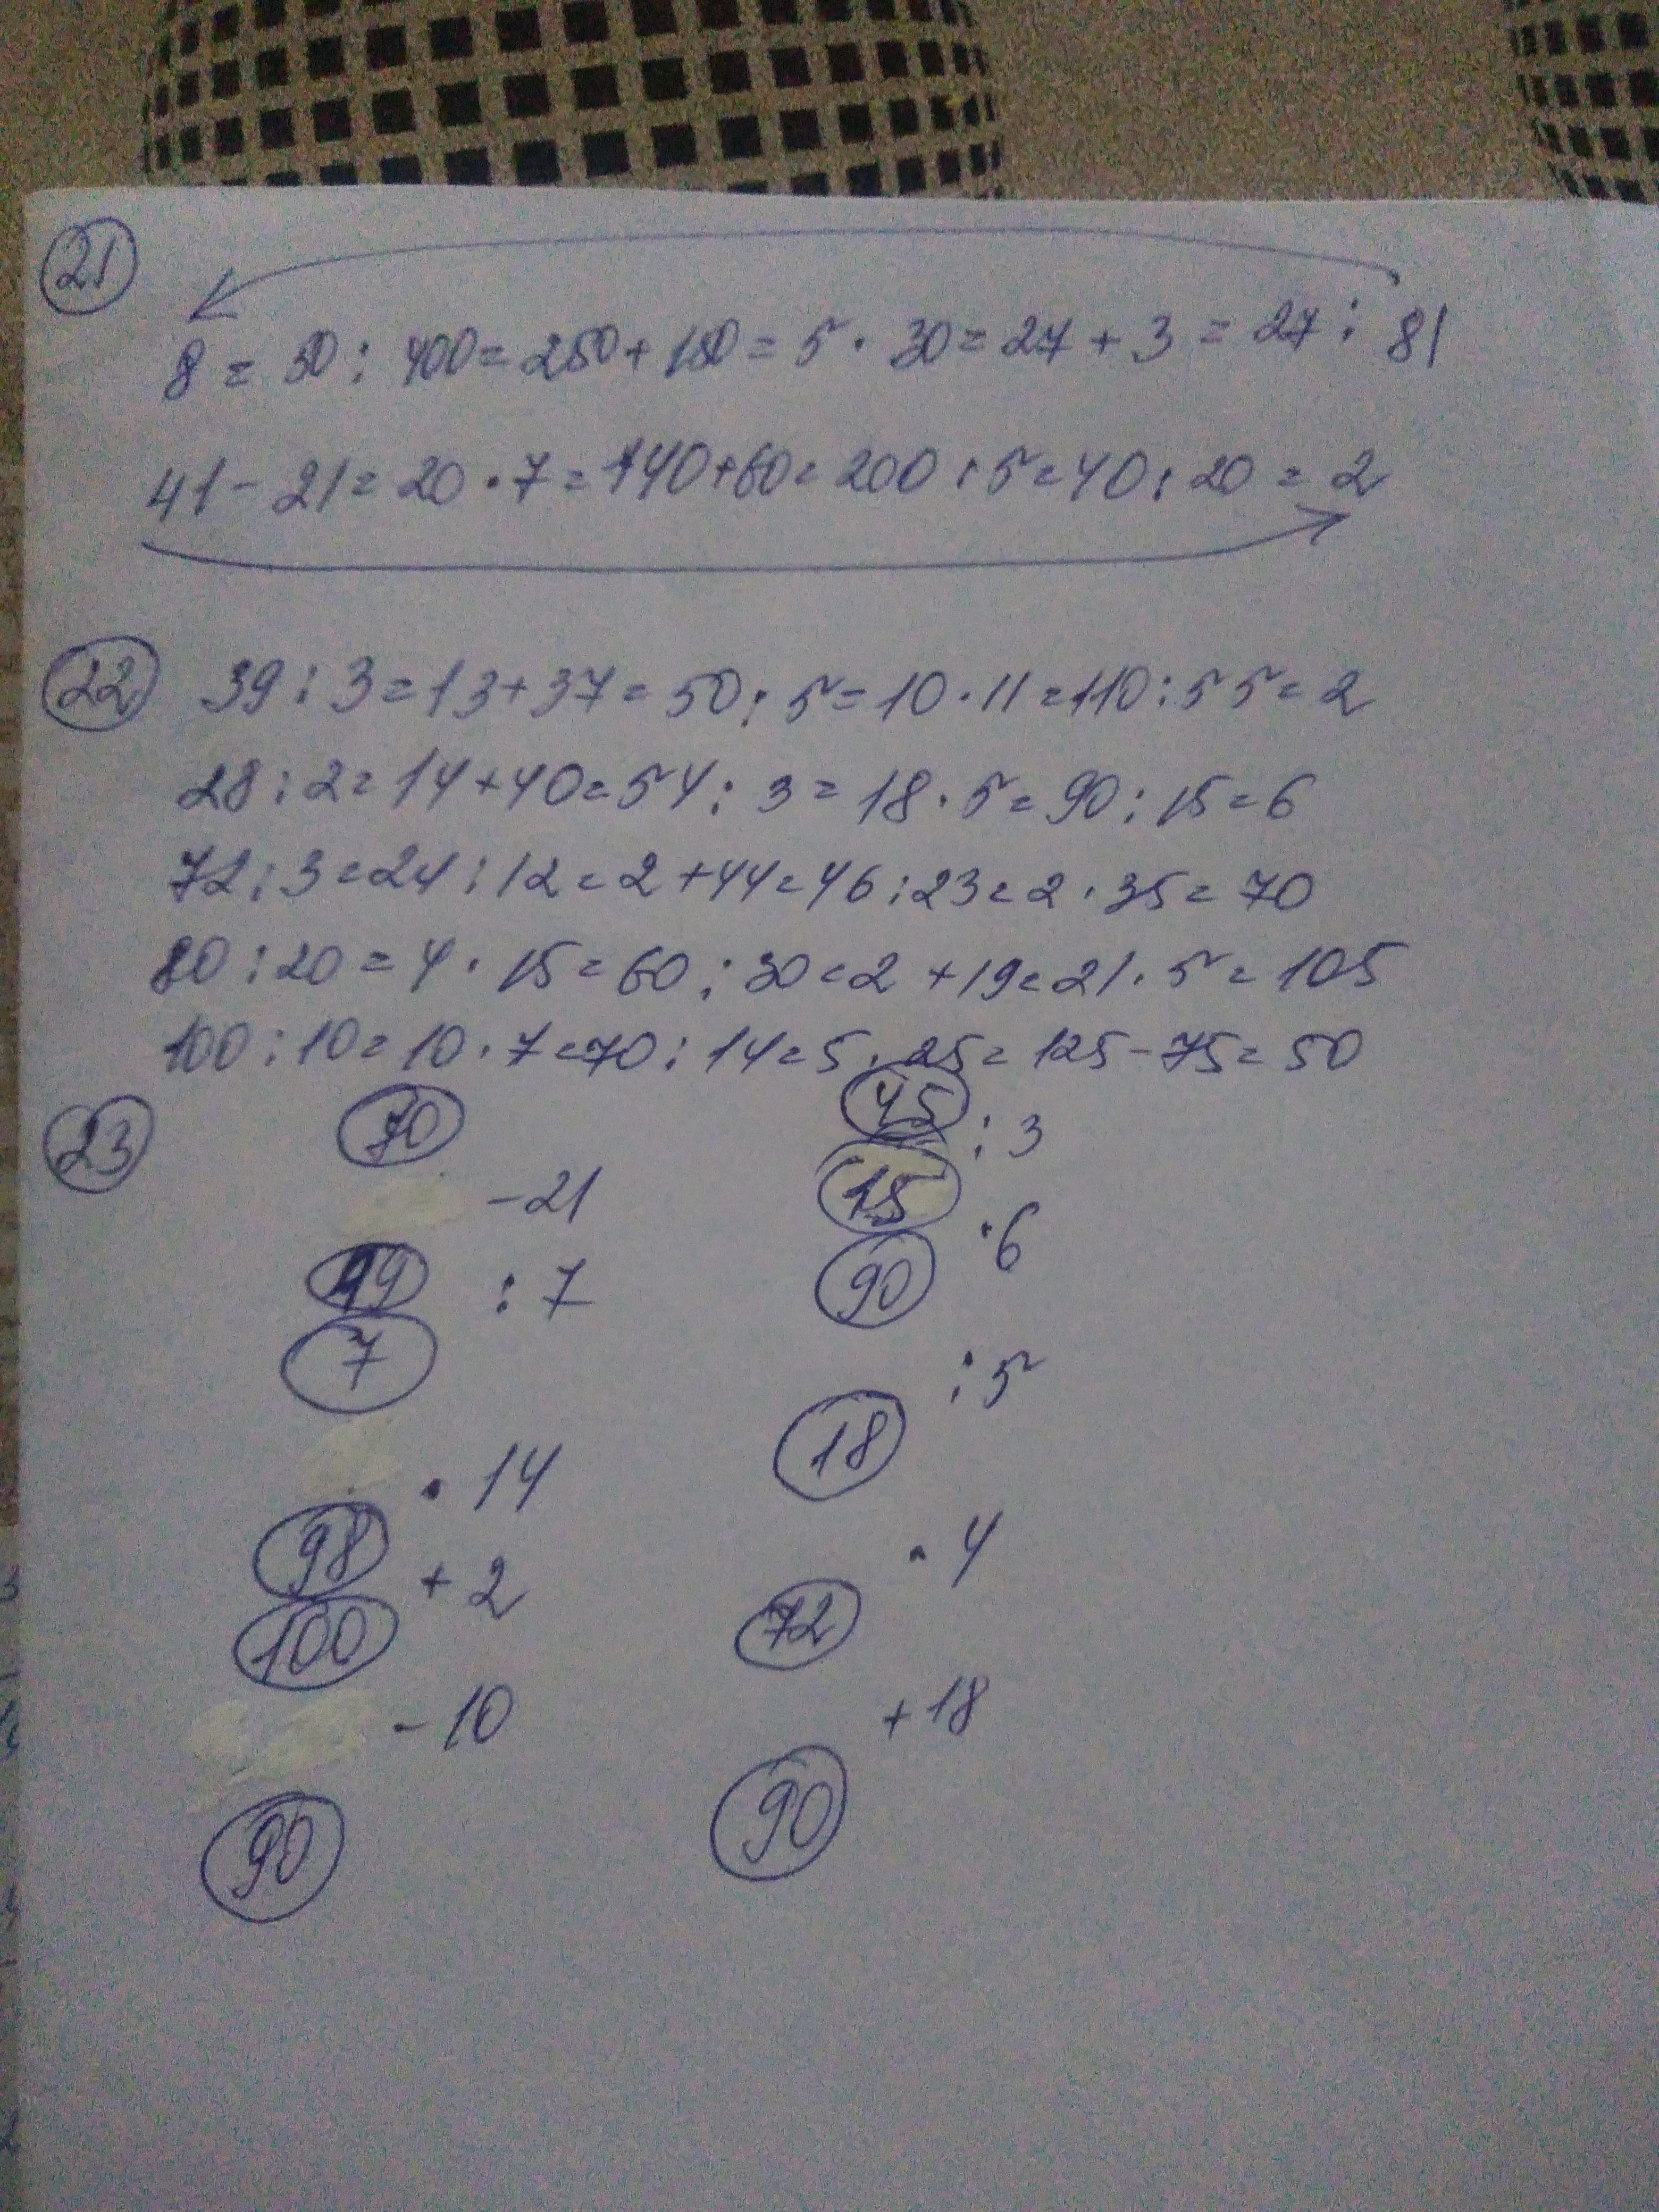 21
8 = 50 : 400 = 250 + 150 = 5 · 30 = 27 + 3 = 27 : 81
41 - 21 = 20 · 7 = 140 + 60 = 200 : 5 = 40 : 20 = 2
22 39 : 3 = 13 + 37 = 50 : 5 = 10 · 11 = 110 : 55 = 2
28 : 2 = 14 + 40 = 54 : 3 = 18 · 5 = 90 : 15 = 6
72 : 3 = 24 : 12 = 2 + 44 = 46 : 23 = 2 · 35 = 70
80 : 20 = 4 · 15 = 60 : 30 = 2 + 19 = 21 · 5 = 105
100 : 10 = 10 · 7 = 70 : 14 = 5 · 25 = 125 - 75 = 50
23
70
- 21
49 : 7
7
· 14
98
+ 2
100
- 10
90
45 : 3
15
· 6
90
: 5
18
· 4
72
+ 18
90